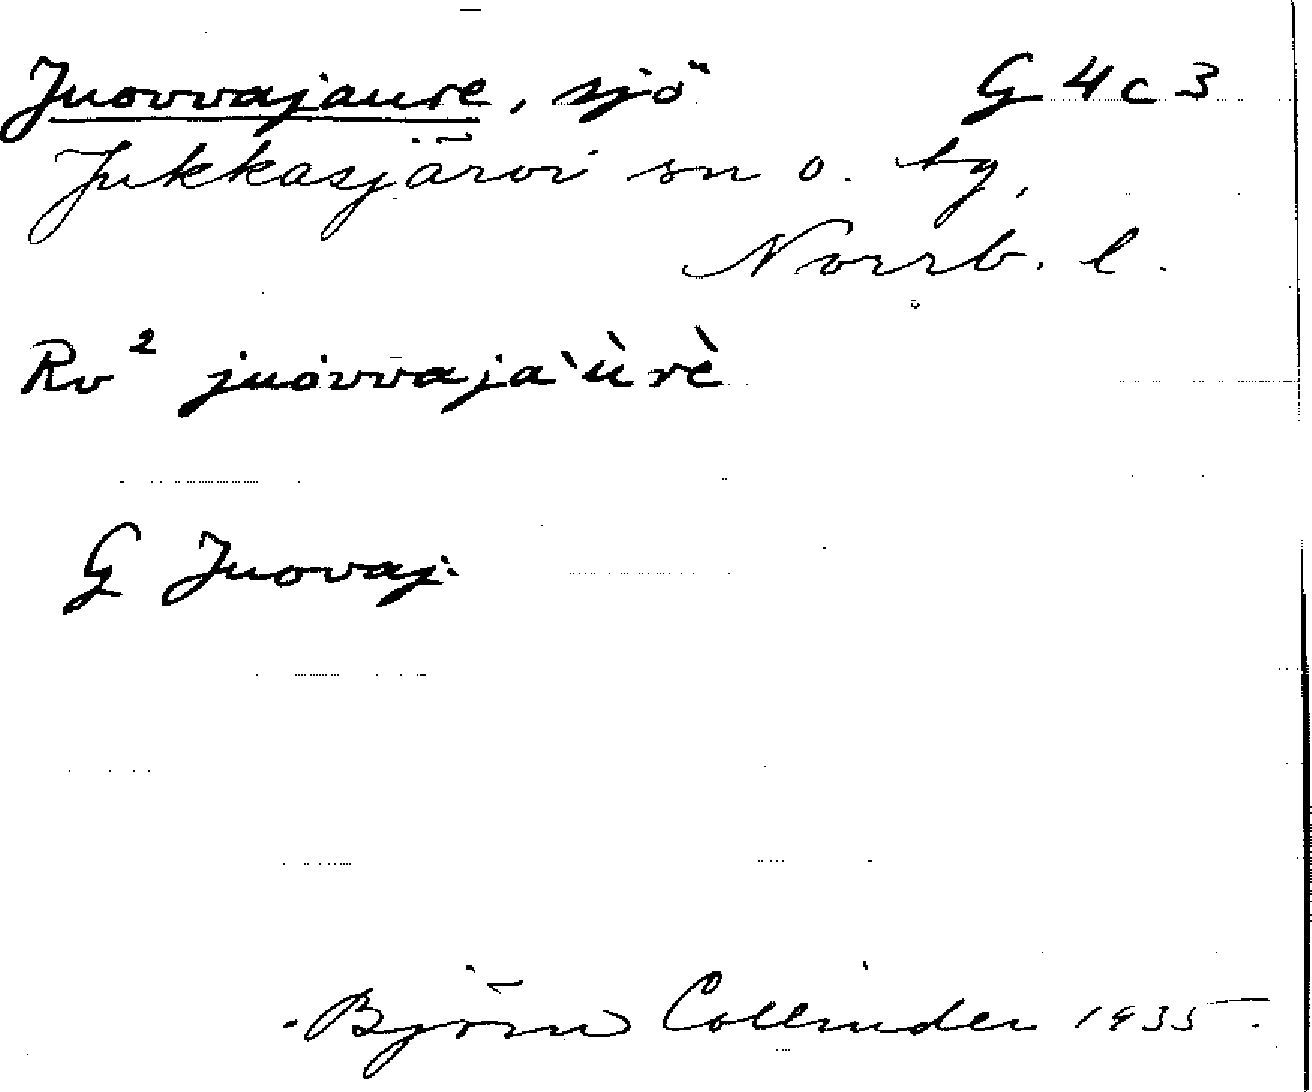 Juovvajaure, sjö G 4 c 3
Jukkasjärvi sn o. tg,
Norrb. l.
Rv² juovvaja`ùrè
G Juovaj:
Björn Collinder 1935.